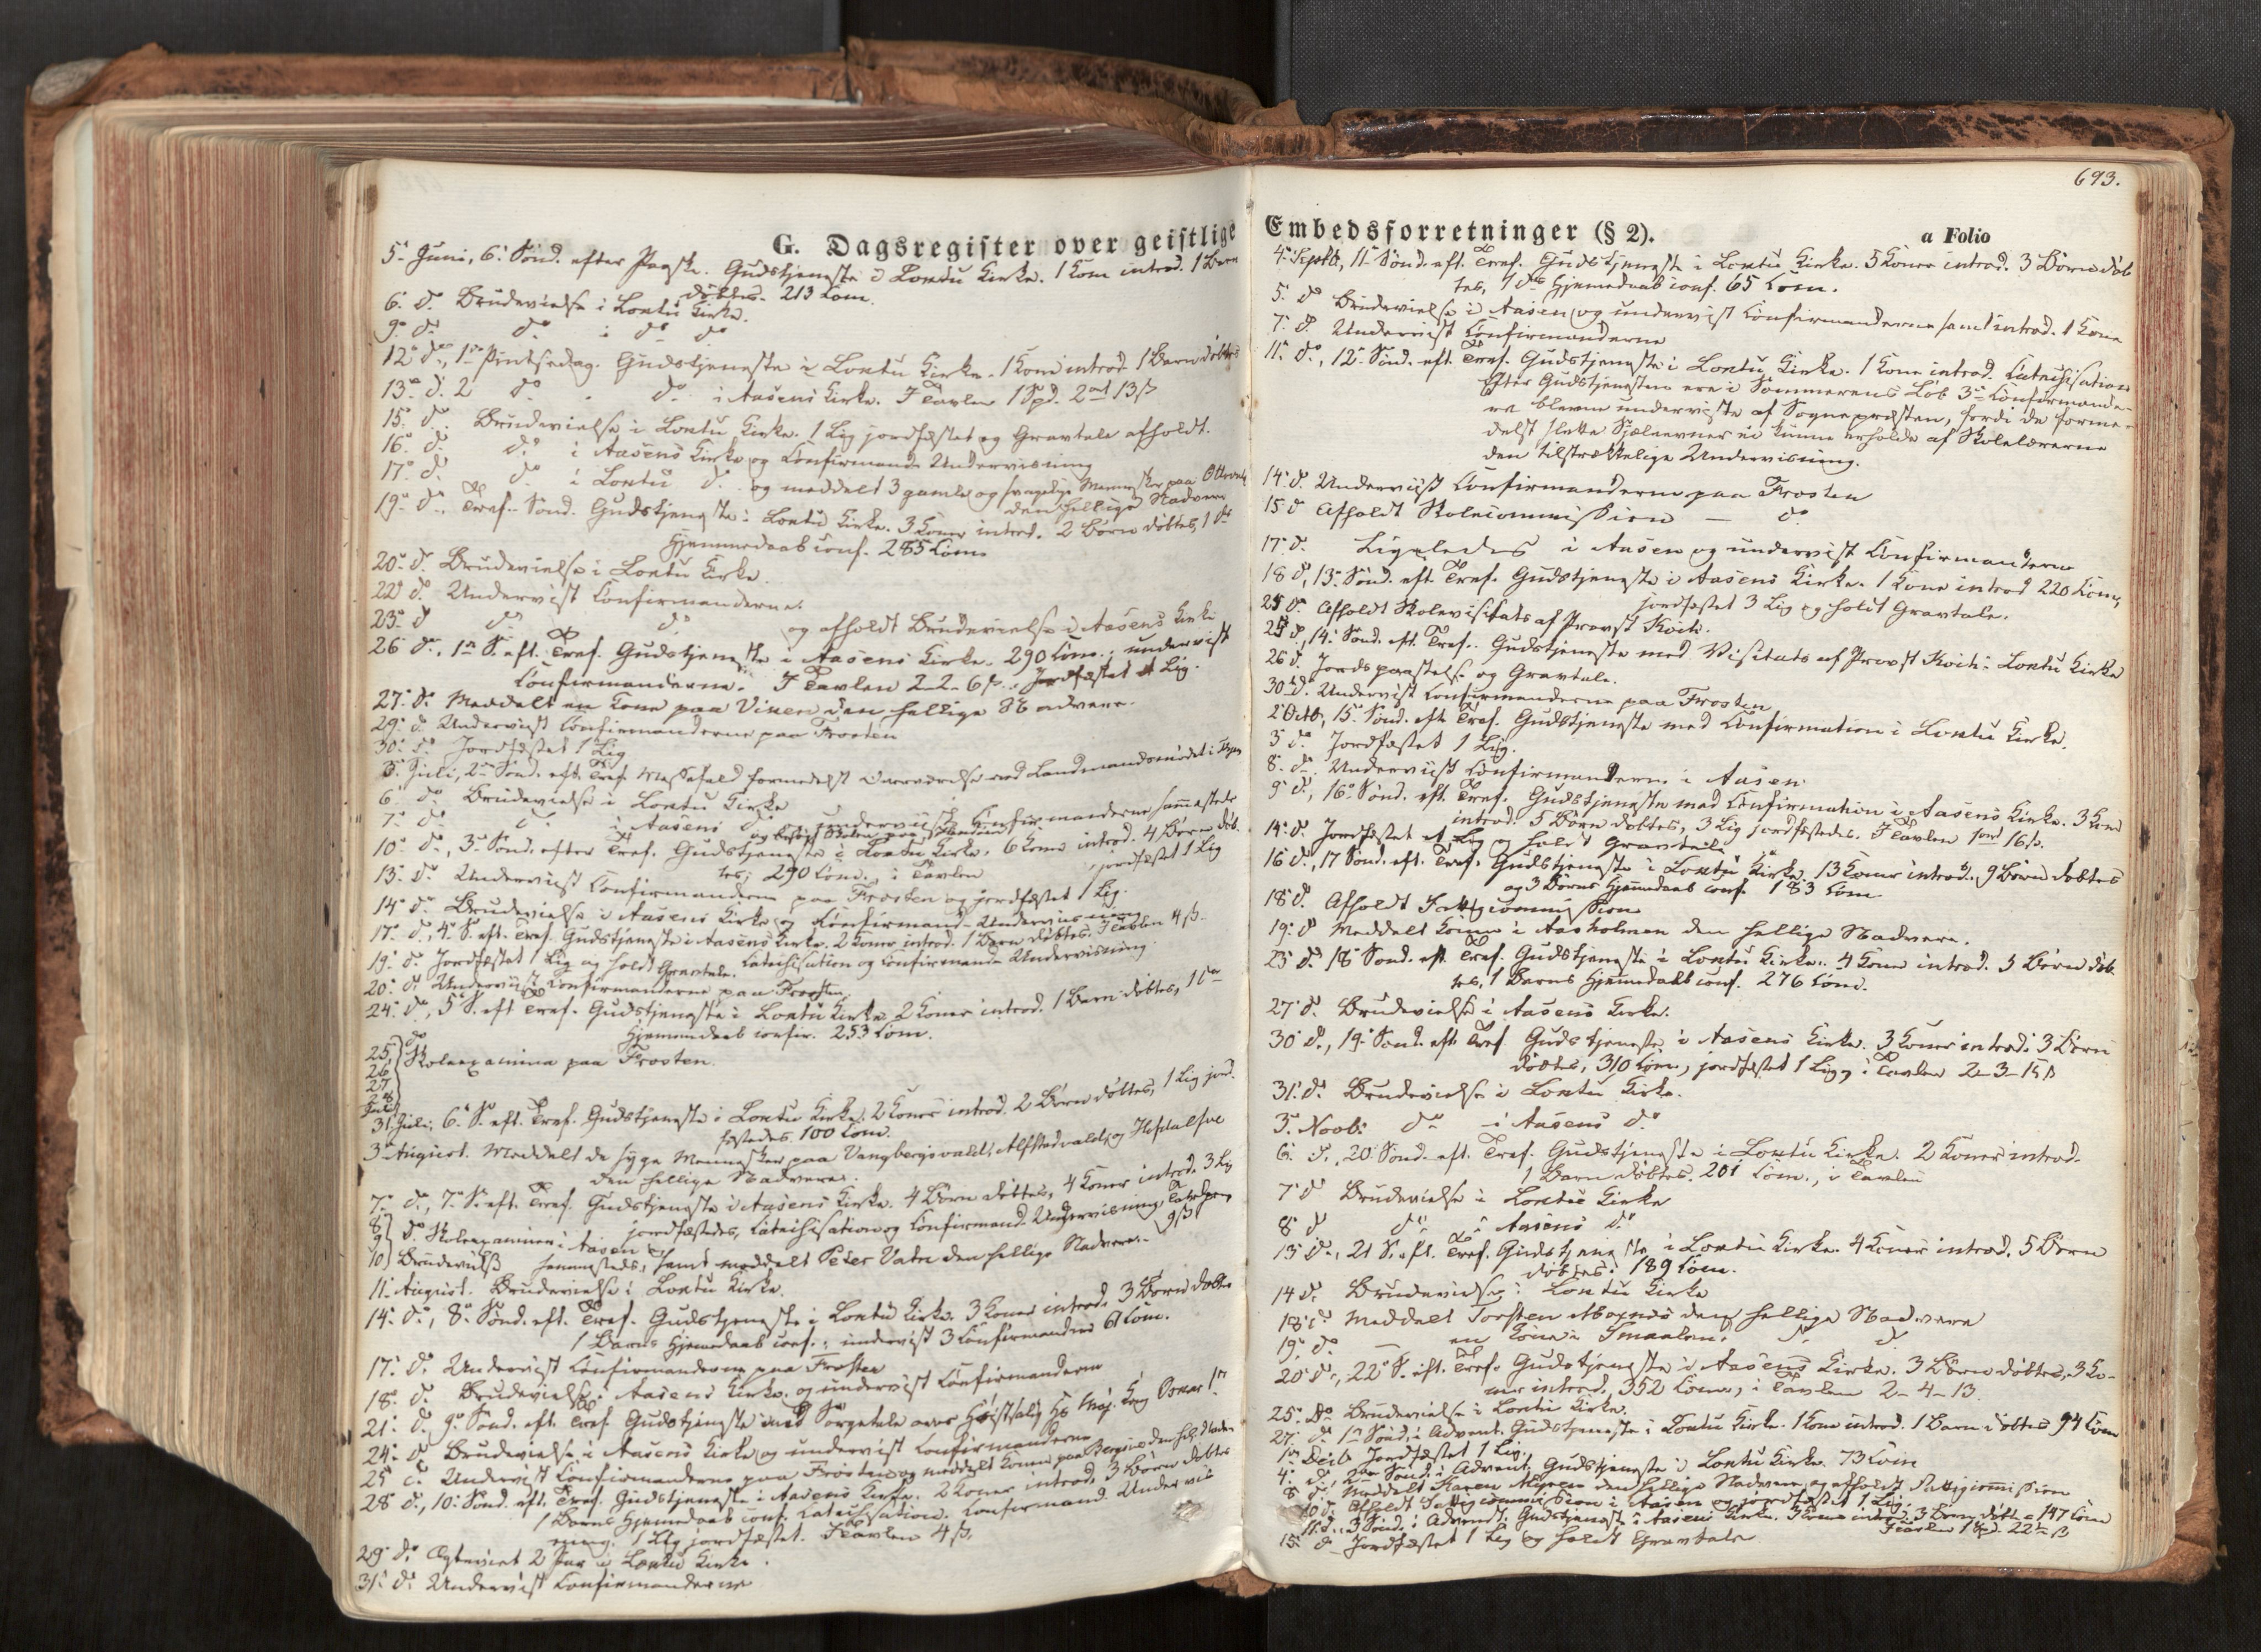 G. Dagsregister over geistlige
5te Juni, 6te Sønd. efter Paaske. Gudstjeneste i Loxtu Kirke. 1 Kone introd. 1 Barn
døbtes. 213 Com.
6te do Brudevielse i Loxtu Kirke.
9de do do i do do
12te do, 1ste Pintsedag. Gudstjeneste i Loxtu Kirke. 1 Kone introd. 1 Barn døbtes
13de do 2 do do i Aasens Kirke. I Tavlen 1 Spd. 2 ort 13 ß
15de do Brudevielse i Loxtu Kirke. 1 Lig jordfæstet og Gravtale afholdt.
16de do do i Aasens Kirke og Confirmande Underviisning
17de do do i Loxtu do og meddelt 3 gamle og svagelige Mennesker paa
den hellige Nadvere
19de do, Tref. Sønd. Gudstjeneste i Loxtu Kirke. 3 Koner introd. 2 Børn døbtes, 1 do
Hjemmedaab conf. 285 Com.
20de do Brudevielse i Loxtu Kirke.
22 do Underviist Confirmanderne.
23de d do do og afholdt Brudevielse i Aasens Kirke
26 do, 1ste S. eft. Tref. Gudstjeneste i Aasens Kirke. 290 Com.; underviist
Confirmanderne. I Tavlen 2-2-6 ß. Jordfæstet 1 Lig.
27de do Meddelt en Kone paa Viken den hellige Nadvere.
29de do Underviist Confirmanderne paa Frosten
30te do Jordfæstet 1 Lig
3de Juli, 2den Sønd. eft. Tref. Messefald formedelst Nærværelse ved Landmandsmødet i
6te do Brudevielse i Loxtu Kirke
7de do do i Aasens do og underviist Confirmanderne sammesteds
og besøgt Skolen paa
10de do, 3die Sønd. efter Tref. Gudstjeneste i Loxtu Kirke. 6 Koner introd. 4 Børn døb-
tes; 290 Com., i Tavlen , jordfæstet 1 Lig
13de do Underviist Confirmanderne paa Frosten og jordfæstet 1 Lig.
14de do Brudevielse i Aasens Kirke og Confirmand-Underviisning
17de do, 4de S. eft. Tref. Gudstjeneste i Aasens Kirke. 2 Koner introd. 1 Barn døbtes. I Tavlen 4 ß.
19de do Jordfæstet 1 Lig og holdt Gravtale. Catechisation og Confirmande Underviisning.
20de do Underviist Confirmanderne paa Frosten.
24de do, 5te S. eft. Tref. Gudstjeneste i Loxtu Kirke 2 Koner introd. 1 Barn døbtes, 1 do
Hjemmedaab confir. 253 Com.
25 do
26 Skoleexamina paa Frosten.
27
28
Juli
31 Juli, 6te S. eft. Tref. Gudstjeneste i Loxtu Kirke. 2 Koner introd. 2 Børn døbtes, 1 Lig jord-
fæstedes. 100 Com.
3 August. Meddelt de syge Mennesker paa Vangbergsvald, Alfstadvald og
den hellige Nadvere.
7de do, 7de S. eft. Tref. Gudstjeneste i Aasens Kirke. 4 Børn døbtes, 4 Koner introd. 3 Lig
jordfæstedes, Catechisation og Confirmand. Underviisning
8 do Skoleexaminer i Aasen 9 ß
9
10 Brudevielse sammesteds, samt meddelt Peter Vatn den hellige Nadvere.
11. August. Brudevielse i Loxtu Kirke.
14de do, 8de Sønd. eft. Tref. Gudstjeneste i Loxtu Kirke. 3 Koner introd. 3 Børn døbtes
1 Barns Hjemmedaab conf.; underviist 3 Confirmander 61 Com.
17de do Underviist Confirmanderne paa Frosten
18de do Brudevielse i Aasens Kirke, og underviist Confirmanderne
21de do 9de Sønd. eft. Tref. Gudstjeneste med Sørgetale over Høistsalig Hs Maj. Kong Oscar 1ste
24de do Brudevielse i Aasens Kirke og underviist Confirmanderne
25 do Underviist Confirmanderne paa Frosten og meddelt Konen paa den hel. Nadv.
28 do, 10de Sønd. eft. Tref. Gudstjeneste i Aasens Kirke. 2 Koner introd. 3 Børn døbtes
1 Barns Hjemmedaab conf. Catechisation. Confirmand. Underviis-
ning. 1 Lig jordfæstet. I Tavlen 4 ß.
29de do Ægteviet 2 Par i Loxtu Kirke.
31te do Underviist Confirmanderne
693.
Embedsforretninger (§ 2). a Folio
4de Septb, 11te Sønd. eft. Tref. Gudstjeneste i Loxtu Kirke. 5 Koner introd. 3 Børn døb
tes, 1 do Hjemmedaab conf. 65 Com.
5 do Brudevielse i Aasen og underviist Confirmanderne samt introd. 1 Kone
7de do Underviist Confirmanderne
11te do, 12te Sønd. eft. Tref. Gudstjeneste i Loxtu Kirke. 1 Kone introd. Catechisation
Efter Gudstjenesten ere i Sommerens Løb 3de Confirmande-
re blevne underviiste af Sognepræsten, fordi de forme-
delst slette Sjæleevner ei kunne erholde af Skolelærerne
den tilstrækkelige Underviisning.
14de do Underviist Confirmanderne paa Frosten
15 d Afholdt Skolecommission — do
17de do Ligeledes i Aasen og underviist Confirmanderne
18 d, 13de Sønd. eft. Tref. Gudstjeneste i Aasens Kirke. 1 Kone introd 220 Com,
jordfæstet 3 Lig og holdt Gravtale.
do Afholdt Skolevisitats af Provst Koch.
25 d, 14de Sønd. eft. Tref. Gudstjeneste med Visitats af Provst Koch i Loxtu Kirke
26 d. Jordspaastelse og Gravtale.
30te do. Underviist Confirmanderne paa Frosten
2 Octb, 15de Sønd. eft. Tref. Gudstjeneste med Confirmation i Loxtu Kirke.
3 do Jordfæstet 1 Lig.
8de do Underviist Confirmanderne i Aasen.
9 d, 16de Sønd. eft. Tref. Gudstjeneste med Confirmation i Aasens Kirke. 3 Kon
introd. 5 Børn døbtes, 3 Lig jordfæstedes. I Tavlen 1 ort 16 ß.
14de do Jordfæstet et Lig og holdt Gravtale
16 do, 17 Sønd. eft. Tref. Gudstjeneste i Loxtu Kirke. 13 Koner introd. 9 Børn døbtes
og 3 Børns Hjemmedaab conf. 183 Com
18de d. Afholdt Fattigcommission
19de d Meddelt Konen i Aasholmen den hellige Nadvere.
23 d. 18de Sønd. eft. Tref. Gudstjeneste i Loxtu Kirke. 4 Koner introd. 3 Børn døb-
tes, 1 Barns Hjemmedaab conf. 276 Com.
27de do Brudevielse i Aasens Kirke.
30te do, 19de Sønd. eft. Tref. Gudstjeneste i Aasens Kirke. 3 Koner introd. 3 Børn
døbtes, 310 Com, jordfæstet 1 Lig, i Tavlen 2-3-15 ß
31te do Brudevielse i Loxtu Kirke.
3de Novb: do i Aasens do
6te d., 20de Sønd. eft. Tref. Gudstjeneste i Loxtu Kirke. 2 Koner introd.
1 Barn døbtes. 201 Com., i Tavlen
7 do Brudevielse i Loxtu Kirke
8de d do i Aasens do
13 do, 21 S. eft. Tref. Gudstjeneste i Loxtu Kirke. 4 Koner introd. 5 Børn
døbtes. 189 Com.
14 do Brudevielse i Loxtu Kirke
18de do Meddelt Torsten den hellige Nadvere
19de do — en Kone i do do
20de do, 22de S. eft. Tref. Gudstjeneste i Aasens Kirke. 3 Børn døbtes, 3 Ko-
ner introd., 352 Com., i Tavlen 2-4-13
25de do Brudevielse i Loxtu Kirke.
27de do 1ste Sønd. i Advent. Gudstjeneste i Loxtu Kirke. 1 Kone introd. 1 Barn døbtes 94 Com
1ste Decb Jordfæstet 1 Lig.
4de do, 2den Sønd. i Advent. Gudstjeneste i Loxtu Kirke 73 Com
8 do Meddelt Karen den hellige Nadvere, og afholdt Fattigcommission
10 do Afholdt Fattigcommission i Aasen og jordfæstet 1 Lig.
11 do, 3 Sønd. i Advent. Gudstjeneste i Aasens Kirke. 3 Koner introd. 3 Børn døbte 147 Com
I Tavlen 1 Spd. 22 ß
15de do Jordfæstet 1 Lig og holdt Gravtale